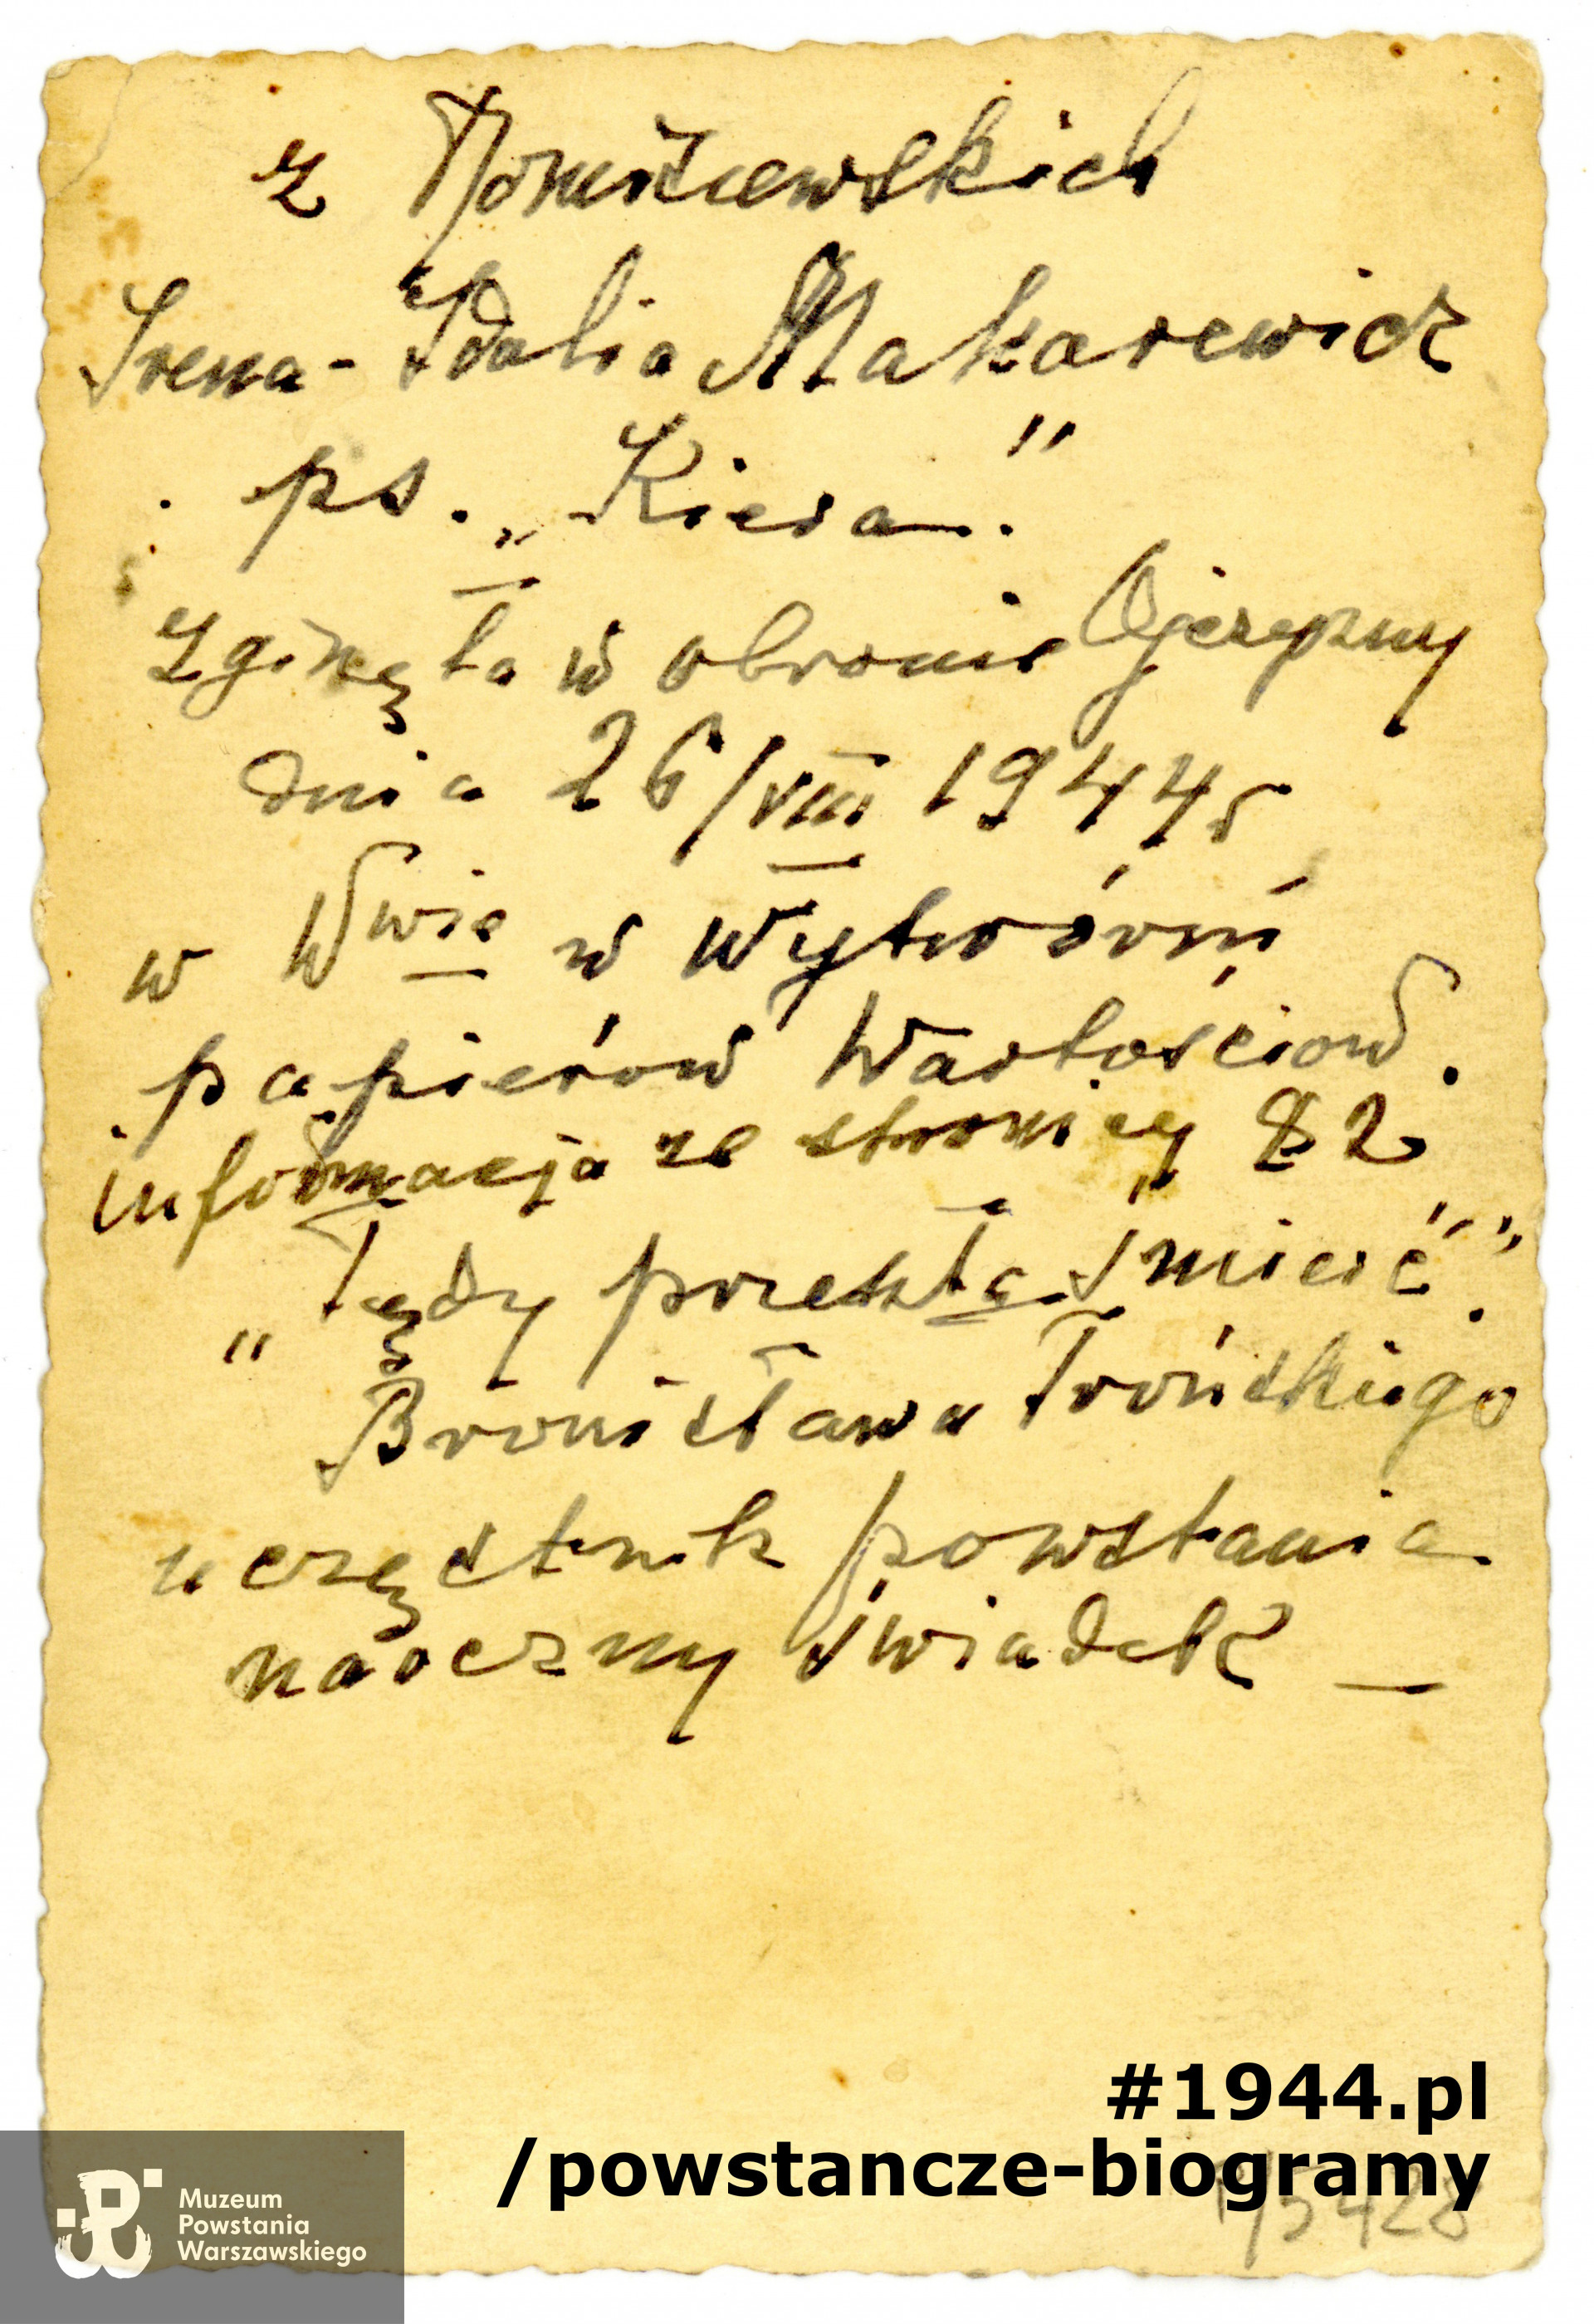 z
Irena - Idalia Makarewicz
ps. „Kiera."
Zginęła w obronie Ojczyzny
dnia 26/VIII 1944 r
w Wwie w Wytwórni
papierów Wartościow.
informacja ze stronicy 82
„Tędy przeszła śmierć".
Bronisława Trońskiego
uczęstnik powstania
naoczny świadek —
#1944.pl
/powstancze-biogramy
P/5428
Muzeum
Powstania
Warszawskiego